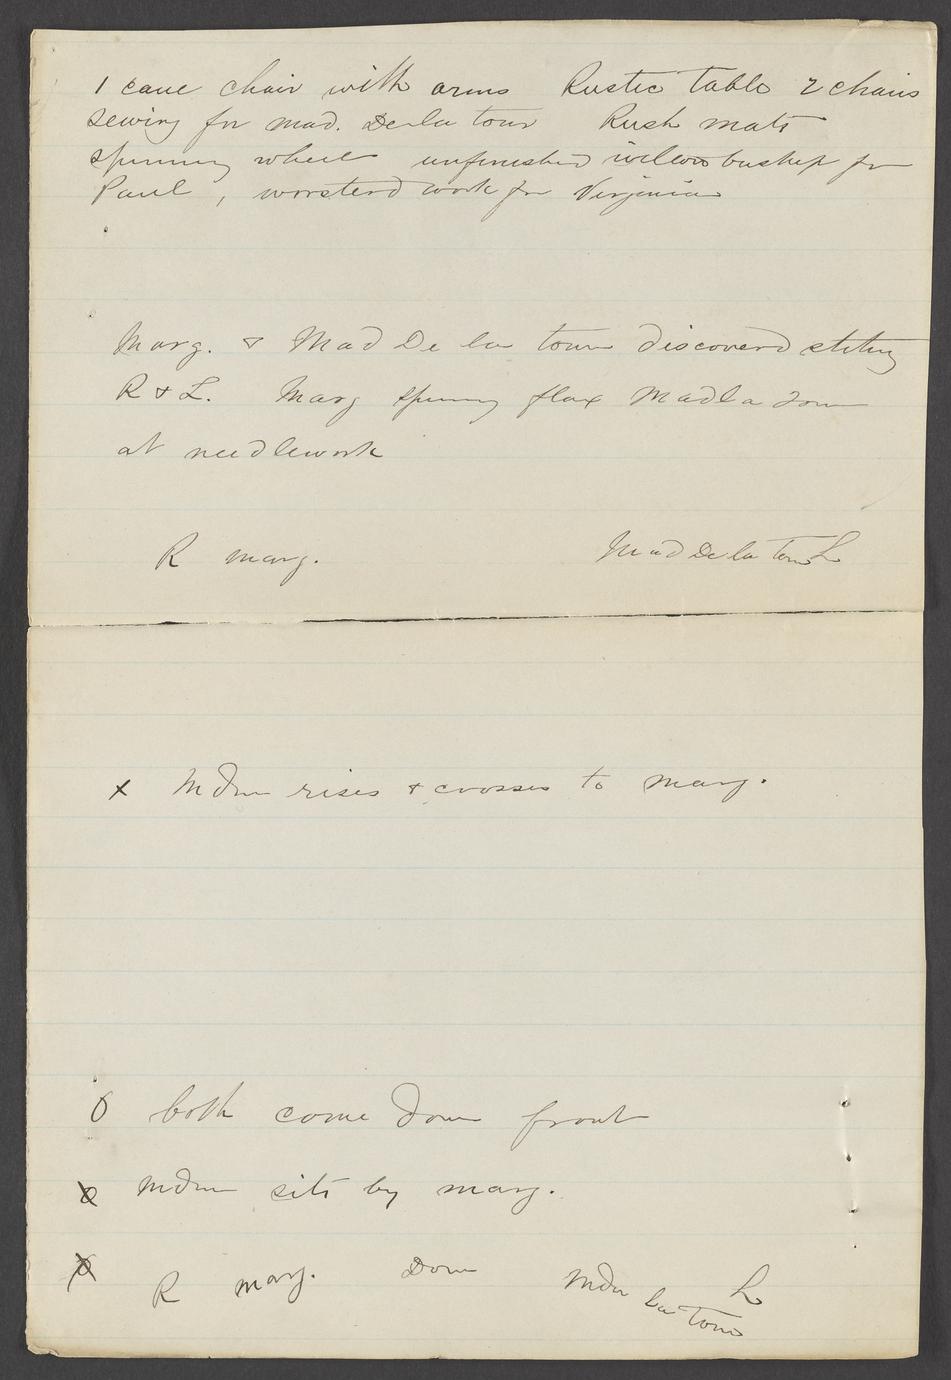 1 cane chair with arms Rustic table 2 chairs
sewing for Mad. De la tour Rush mats
spinning wheel unfinished willow basket for
Paul, worsterd work for Virginia
Marg. & Mad De la tour discoverd sitting
R & L. Marg spinning flax Mad la Tour
at needlework
R Marg. Mad De la Tour L
x rises & crosses to Marg.
O both come down front
sits by Marg.
R Marg. Down la Tour L